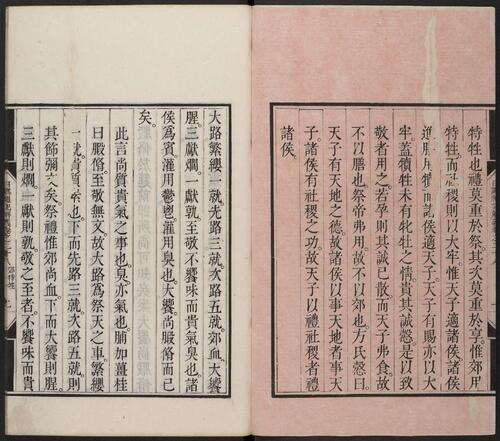 特牲也禮莫重於祭其次莫重於享惟郊用
特牲而社稷則以大牢惟天子適諸侯諸侯
膳用犢而諸侯適天子天子有賜亦以大
牢蓋犢牲未有牝牡之情貴其誠慤是以致
敬者用之若孕則其誠已散而天子弗食故
不以膳也祭帝弗用故不以郊也方氏慤曰
天子有天地之德故諸侯以事天地者事天
子諸侯有社稷之功故天子以禮社稷者禮
諸侯
大路繁纓一就先路三就次路五就郊血大饗
腥三獻爓一獻孰至敬不饗味而貴氣臭也諸
侯爲賓灌用鬱鬯灌用臭也大饗尚腶脩而已
矣
此言尚質貴氣之事也臭亦氣也脯加薑桂
曰腶脩至敬無文故大路爲祭天之車繁纓
一就貴質素也下而先路三就次路五就則
其飾彌文矣祭禮惟郊尚血下而大饗則腥
三獻則爓一獻則孰敬之至者不饗味而貴